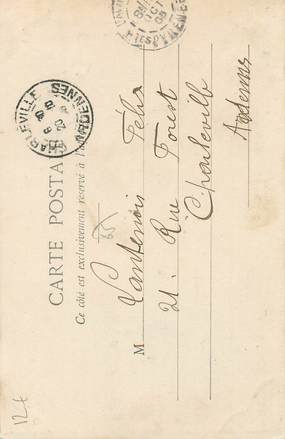 CARTE POSTALE
Ce côté est exclusivement réservé à l'
M Vautenois Félix
21. Rue Forest
Charleville
Ardennes
CHARLEVILLE
ARDENNES
12€